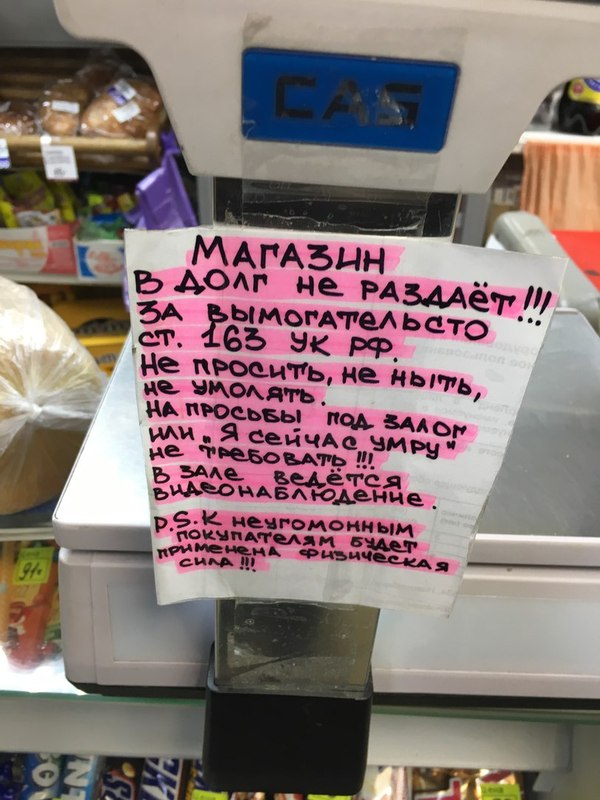 CAS
МАГАЗИН
В ДОЛГ НЕ РАЗДАЁТ!!!
ЗА ВЫМОГАТЕЛЬСТО
СТ. 163 УК РФ.
НЕ ПРОСИТЬ, НЕ НЫТЬ,
НЕ УМОЛЯТЬ.
НА ПРОСЬБЫ ПОД ЗАЛОГ
ИЛИ „Я СЕЙЧАС УМРУ"
НЕ ТРЕБОВАТЬ!!!
В ЗАЛЕ ВЕДЁТСЯ
ВИДЕОНАБЛЮДЕНИЕ.
P.S. К НЕУГОМОННЫМ
ПОКУПАТЕЛЯМ БУДЕТ
ПРИМЕНЕНА ФИЗИЧЕСКАЯ
СИЛА!!!